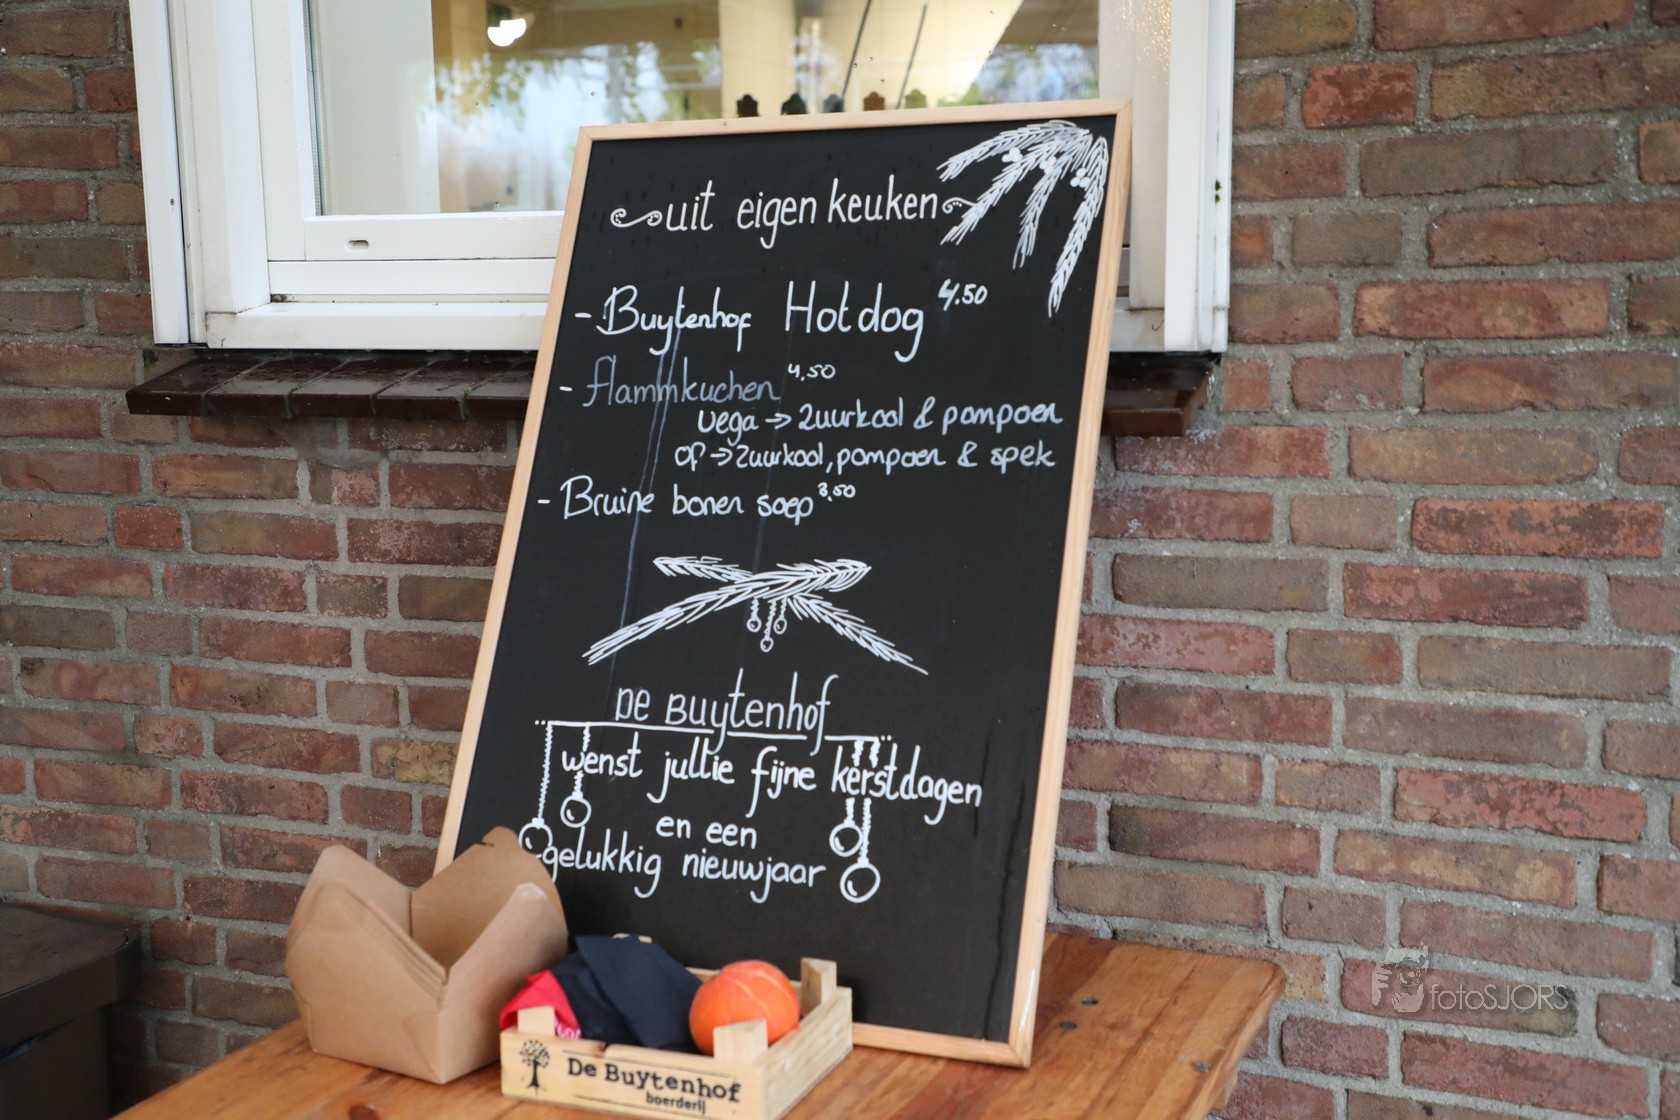 uit eigen keuken
- Buytenhof Hotdog 4.50
- flammkuchen 4,50
vega → zuurkool & pompoen
of → zuurkool, pompoen & spek
- Bruine bonen soep 3,50
DE BUYTENHOF
wenst jullie fijne kerstdagen
en een
gelukkig nieuwjaar
De Buytenhof
boerderij
fotoSJORS